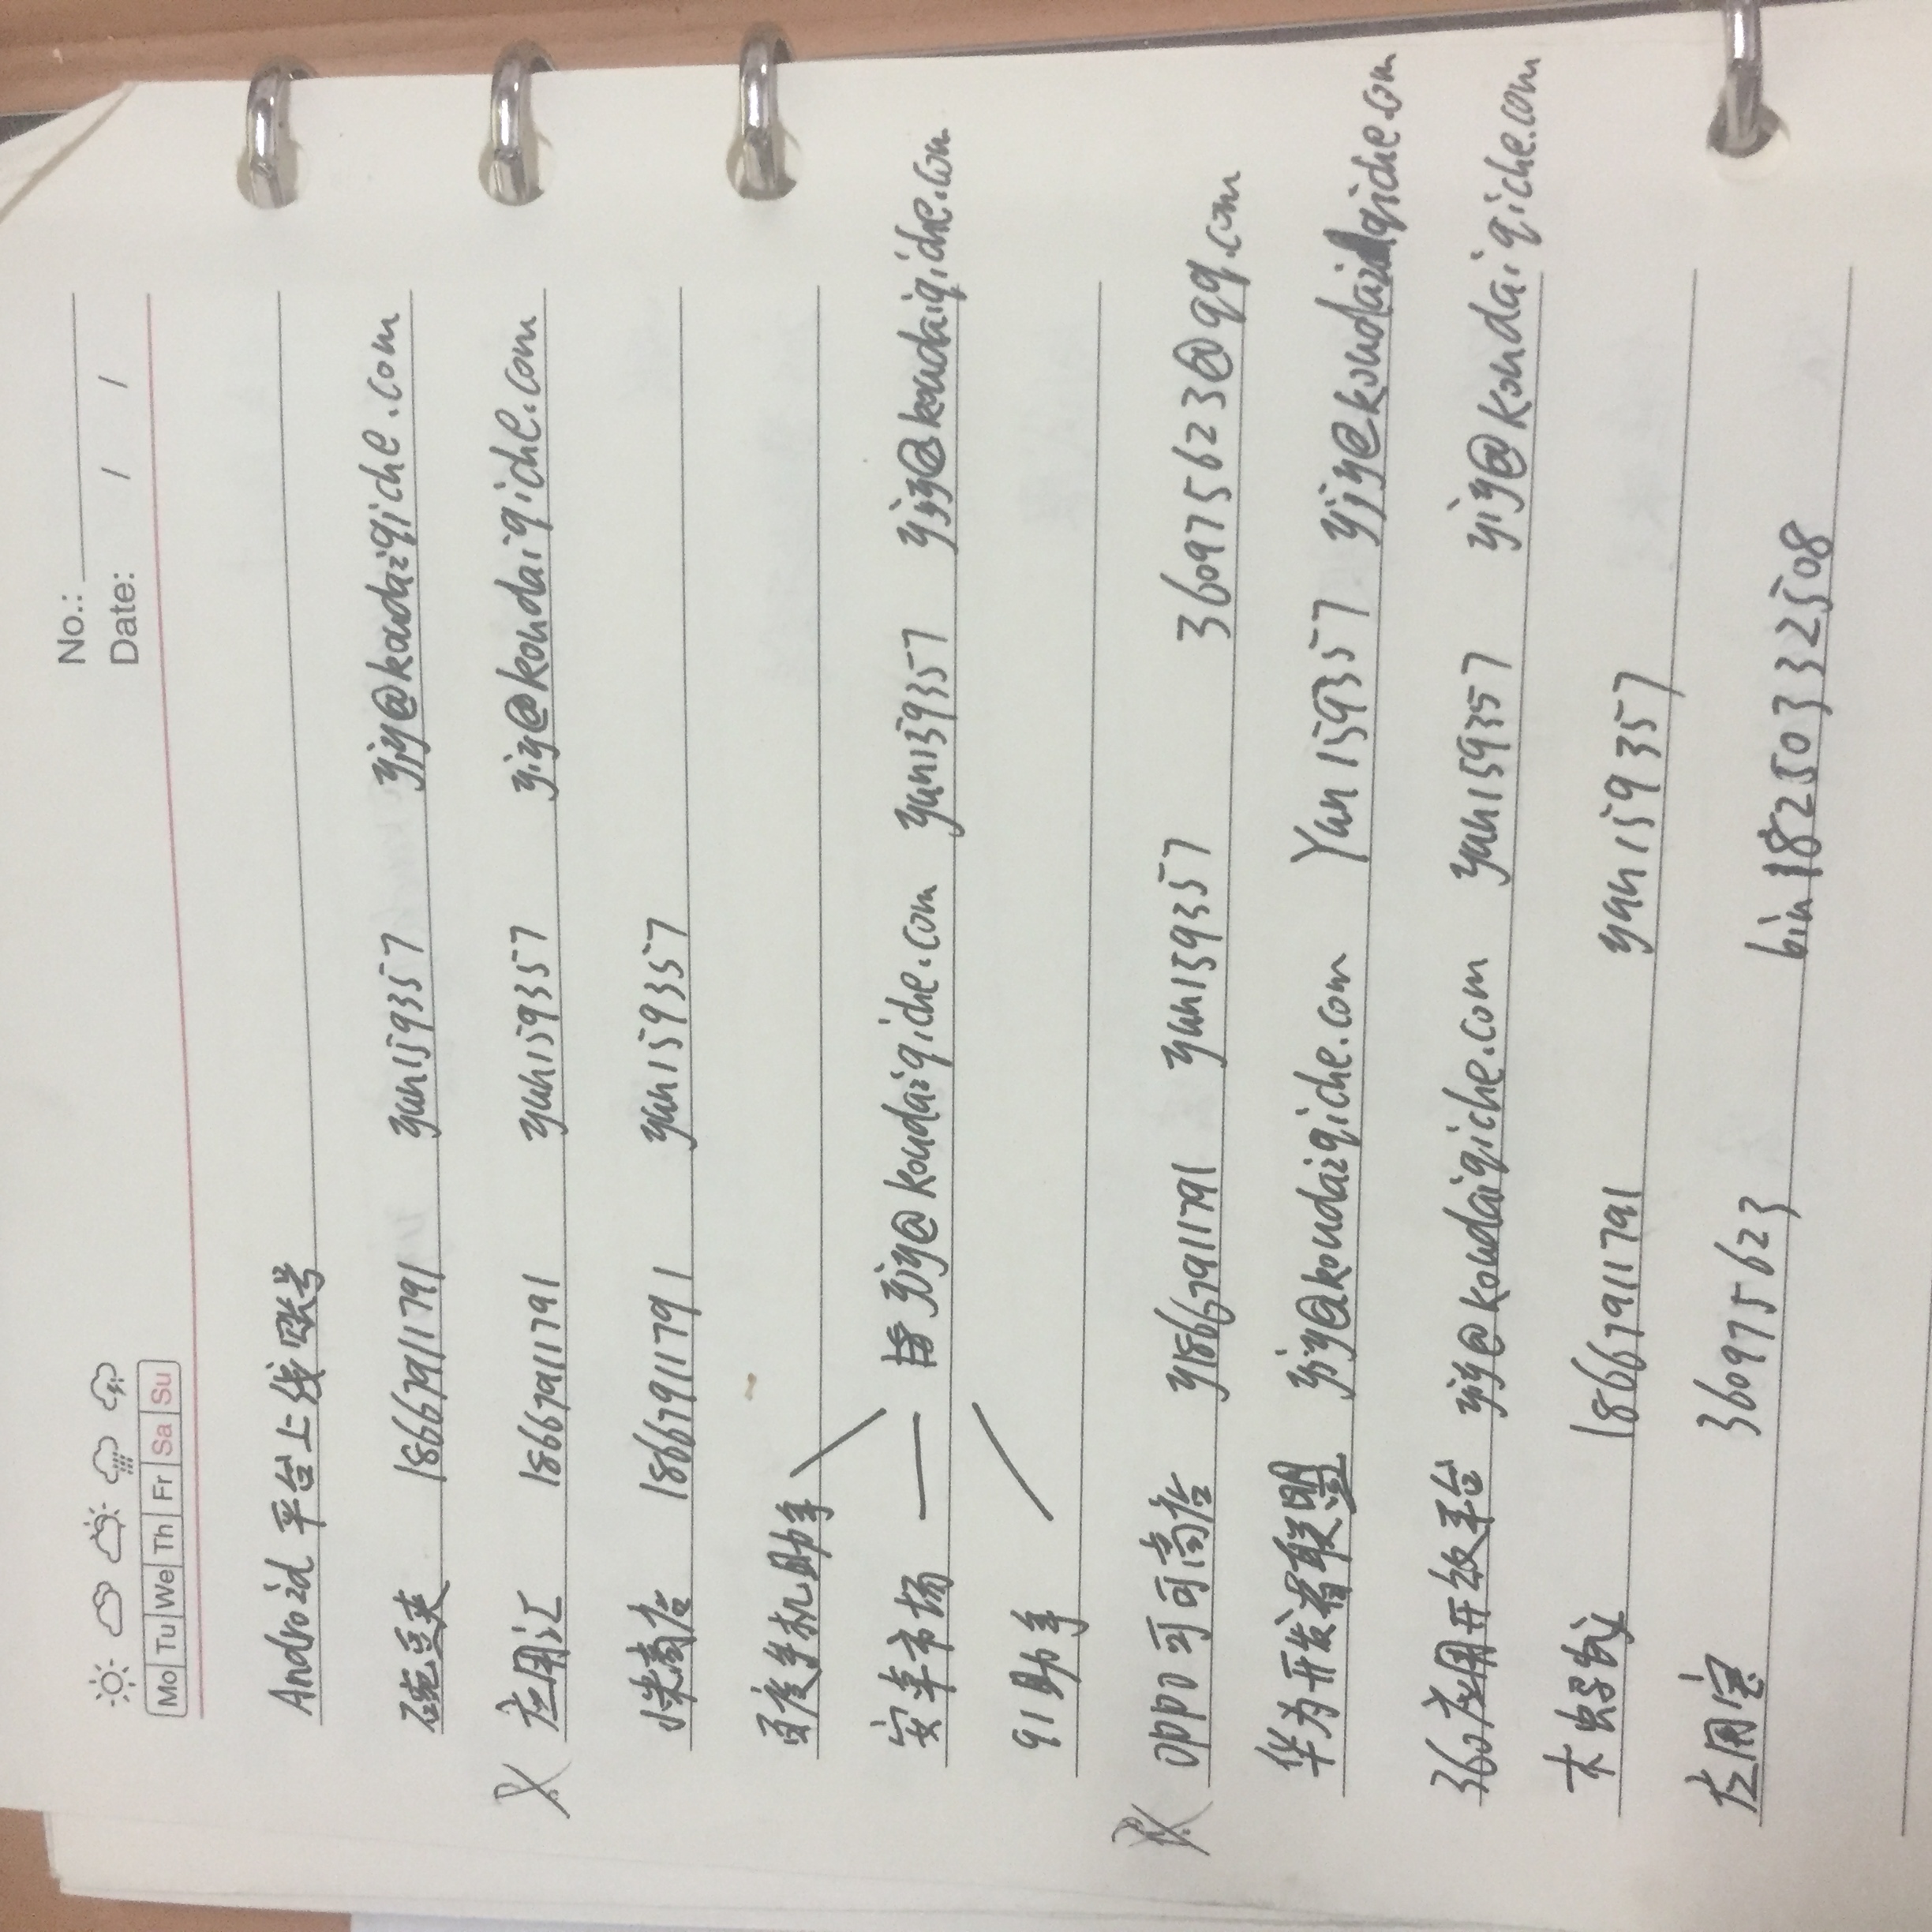 No.:
Date: / /
Mo Tu We Th Fr Sa Su
Android 平台上线账号
豌豆夹 18667911791 yun159357 yjy@koudaiqiche.com
应用汇 18667911791 yun159357 yjy@koudaiqiche.com
小米商店 18667911791 yun159357
百度手机助手
安卓市场 — 皆 yjy@koudaiqiche.com yun159357 yjy@koudaiqiche.com
91助手
oppo可可商店 y18667911791 yun159357 360975623@qq.com
华为开发者联盟 yjy@koudaiqiche.com Yun159357 yjy@koudaiqiche.com
360应用开放平台 yjy@koudaiqiche.com yun159357 yjy@koudaiqiche.com
木蚂蚁 18667911791 yun159357
应用宝 360975623 bin18250332508